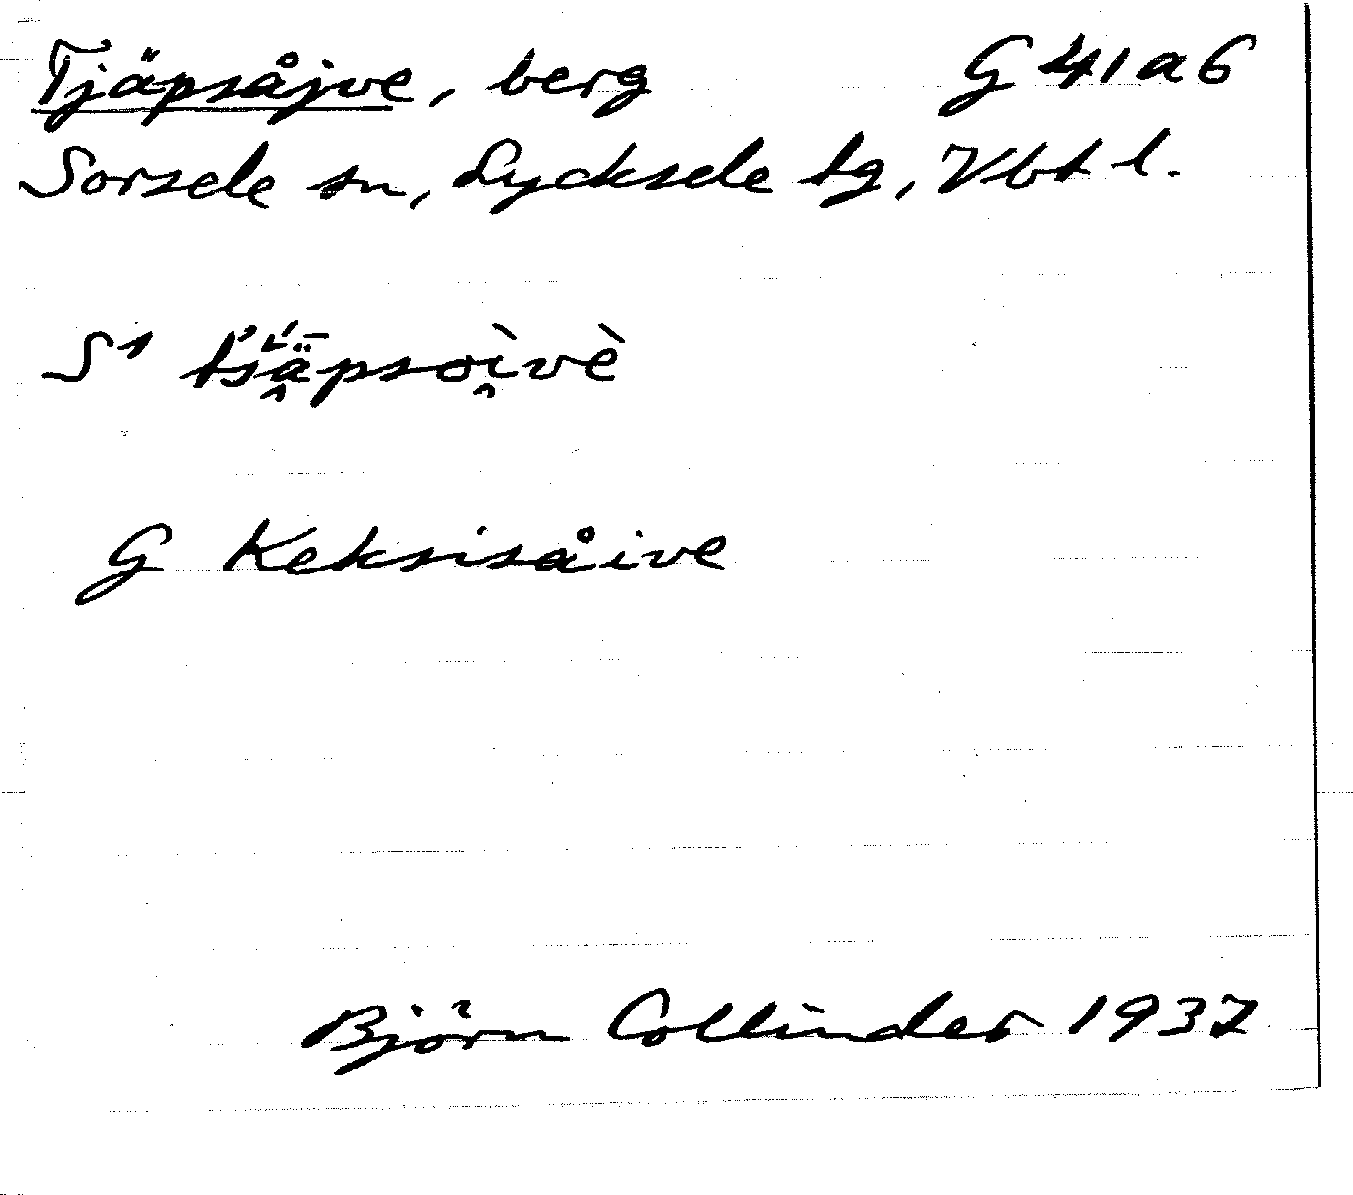 Tjäpsåjve, berg G 41 a 6
Sorsele sn, Lycksele tg, Vbt l.
S¹
G Keksisåive
Björn Collinder 1937